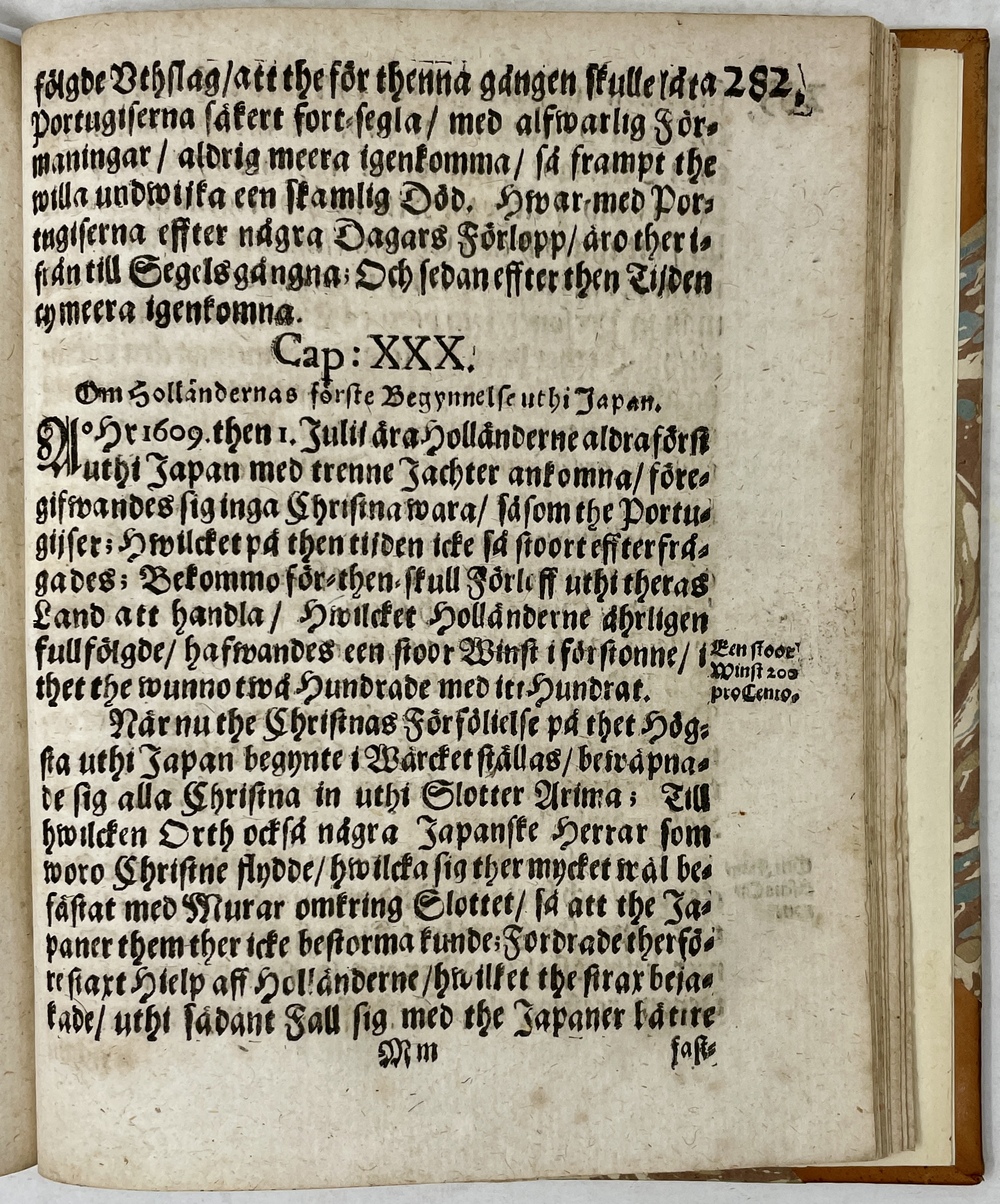 fölgde Vthslag/ att the för thenna gången skulle låta 282.
Portugiserna säkert fort-segla/ med alfwarlig För-
maningar/ aldrig meera igenkomma/ så frampt the
willa undwijka een skamlig Död. Hwar-med Por-
tugiserna effter några Dagars Förlopp/ äro ther i-
från till Segels gångna; Och sedan effter then Tijden
ey meera igenkomna.
Cap: XXX.
Om Holländernas förste Begynnelse uthi Japan.
A:o Hr 1609. then 1. Julii ära Holländerne aldraförst
uthi Japan med trenne Jachter ankomna/ före-
gifwandes sig inga Christna wara/ såsom the Portu-
gijser; Hwilcket på then tijden icke så stoort effterfrå-
gades; Bekommo för-then-skull Förloff uthi theras
Land att handla/ Hwilcket Holländerne åhrligen
fullfölgde/ hafwandes een stoor Winst i förstonne/ i
thet the wunno twå Hundrade med itt Hundrat.
Een stoor
Winst 200
pro Cento.
När nu the Christnas Förföllelse på thet Hög-
sta uthi Japan begynte i Wärcket ställas/ bewäpna-
de sig alla Christna in uthi Slotter Arima; Till
hwilcken Orth också några Japanske Herrar som
woro Christne flydde/ hwilcka sig ther mycket wäl be-
fästat med Murar omkring Slottet/ så att the Ja-
paner them ther icke bestorma kunde; Fordrade therfö-
re staxt Hielp aff Holländerne/ hwilket the strax beja-
kade/ uthi sådant Fall sig med the Japaner bättre
Mm fast-